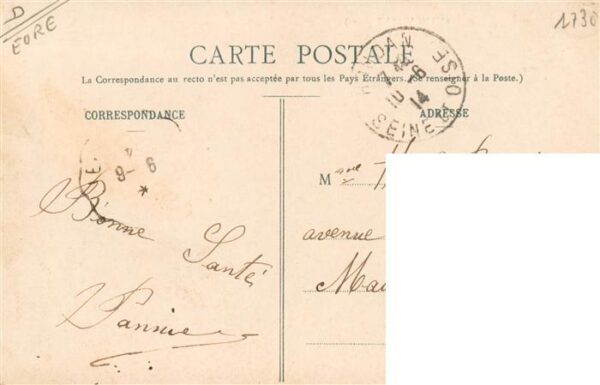 EORE
1730
CARTE POSTALE
La Correspondance au recto n'est pas acceptée par tous les Pays Étrangers. (Se renseigner à la Poste.)
HOUDAN
10-6
14
SEINE & OISE
CORRESPONDANCE
ADRESSE
9-6
*
Mme
avenue
Bonne
Santé
Nannie